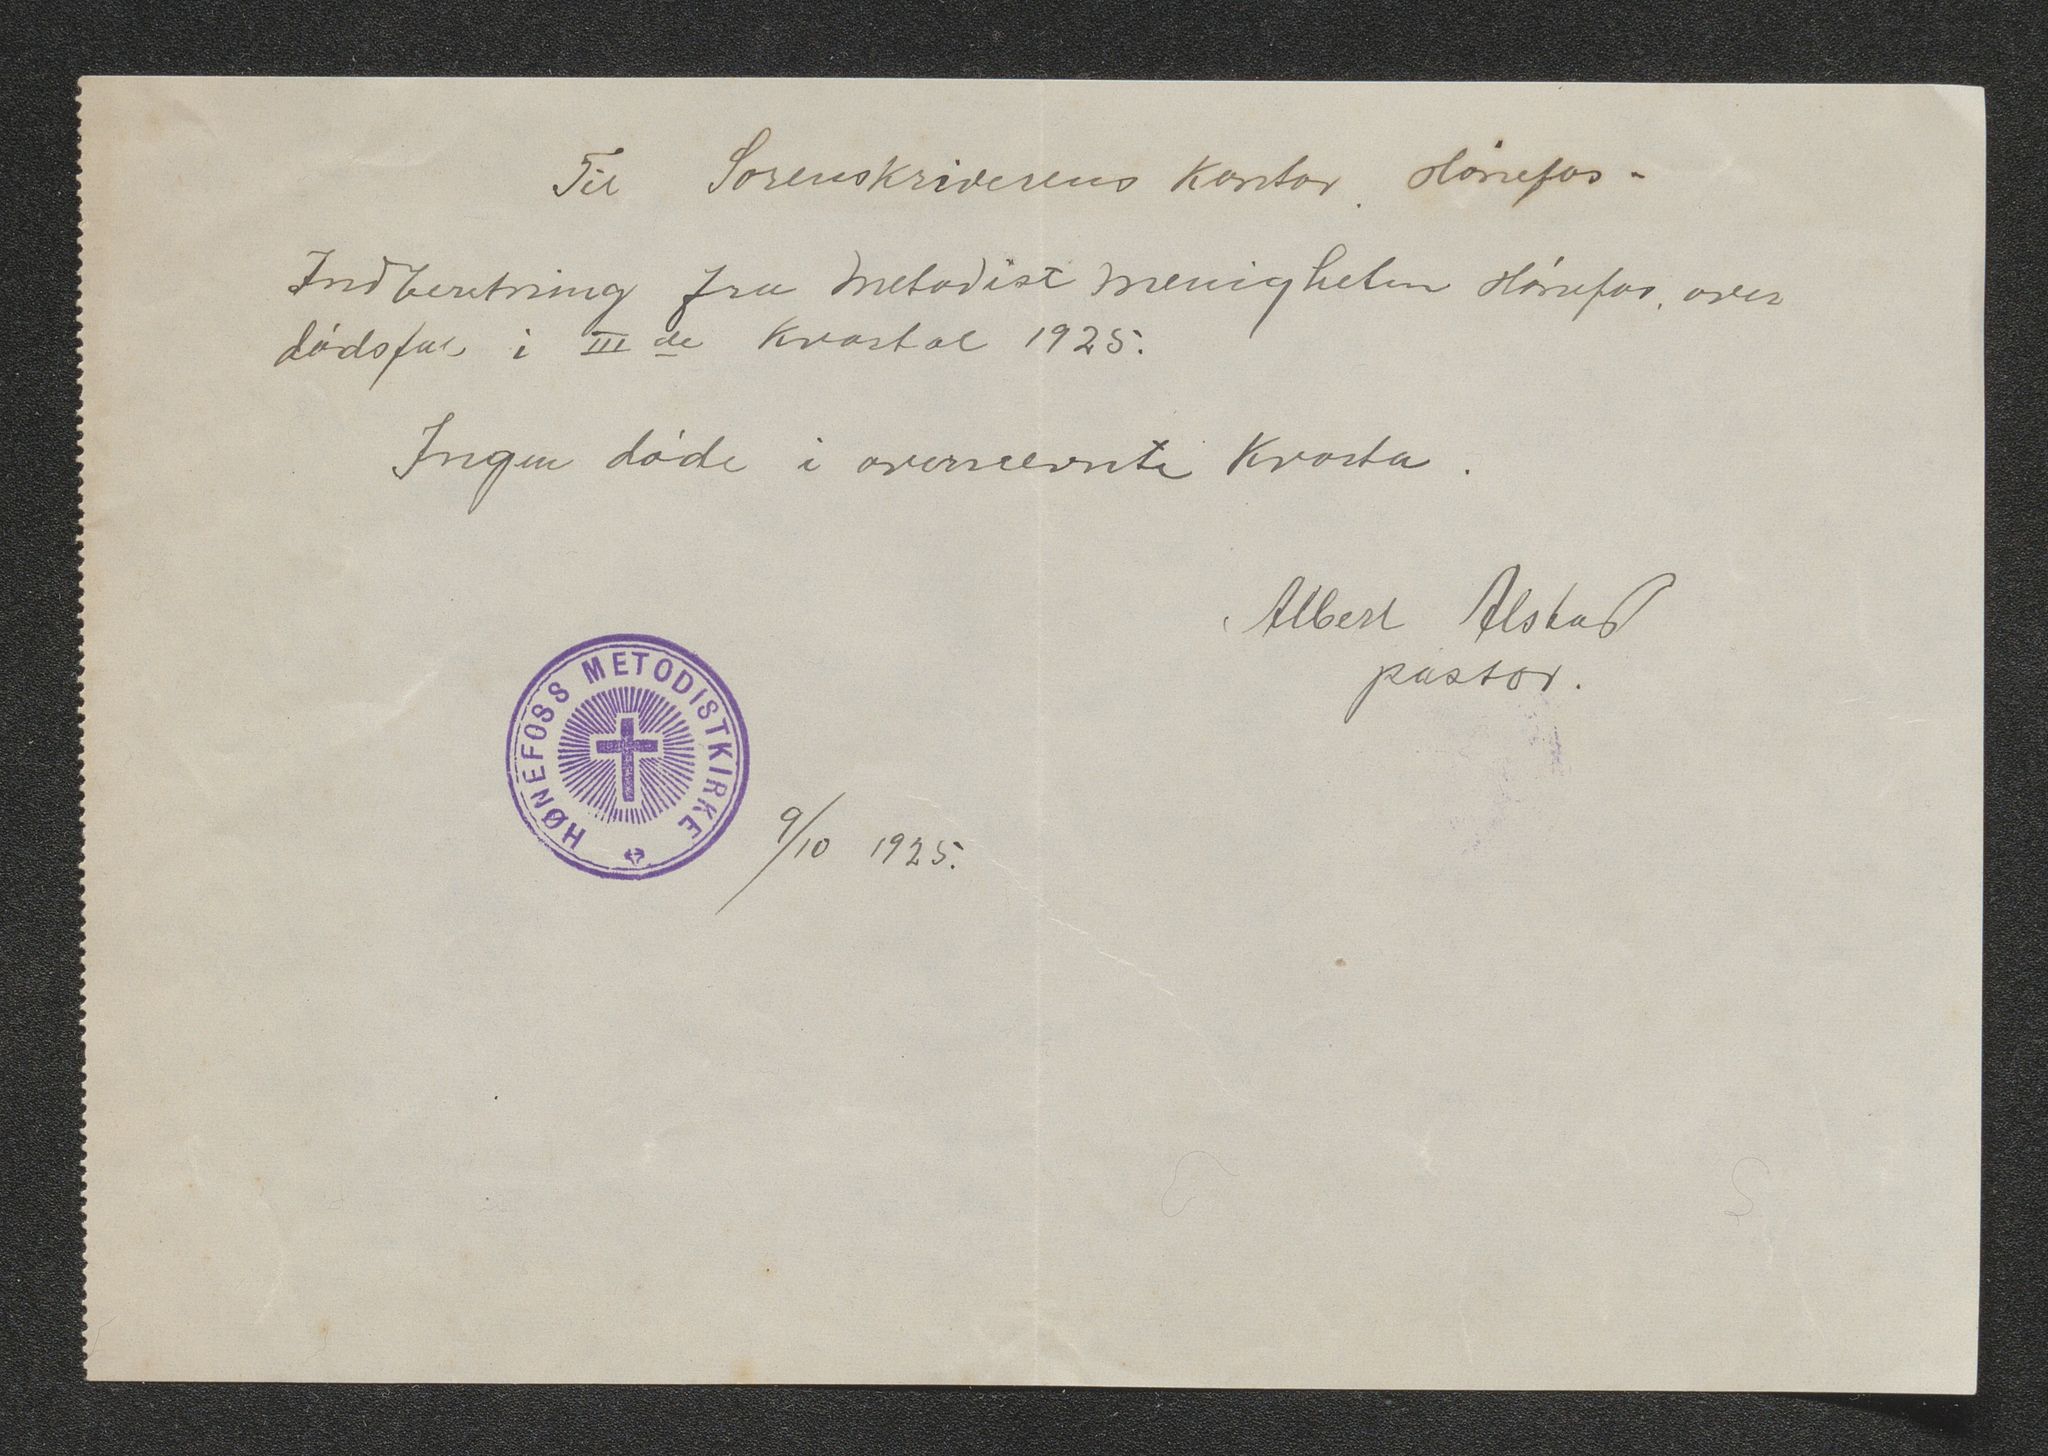 Til Sorenskriverens Kontor. Hønefos -
Indberetning fra Metodist menigheten Hønefos, over
dødsfal i III de Kvartal 1925.
Ingen døde i overnevnte Kvarta .
Albert Alstad
pastor.
HØNEFOSS METODISTKIRKE
9/10 1925.